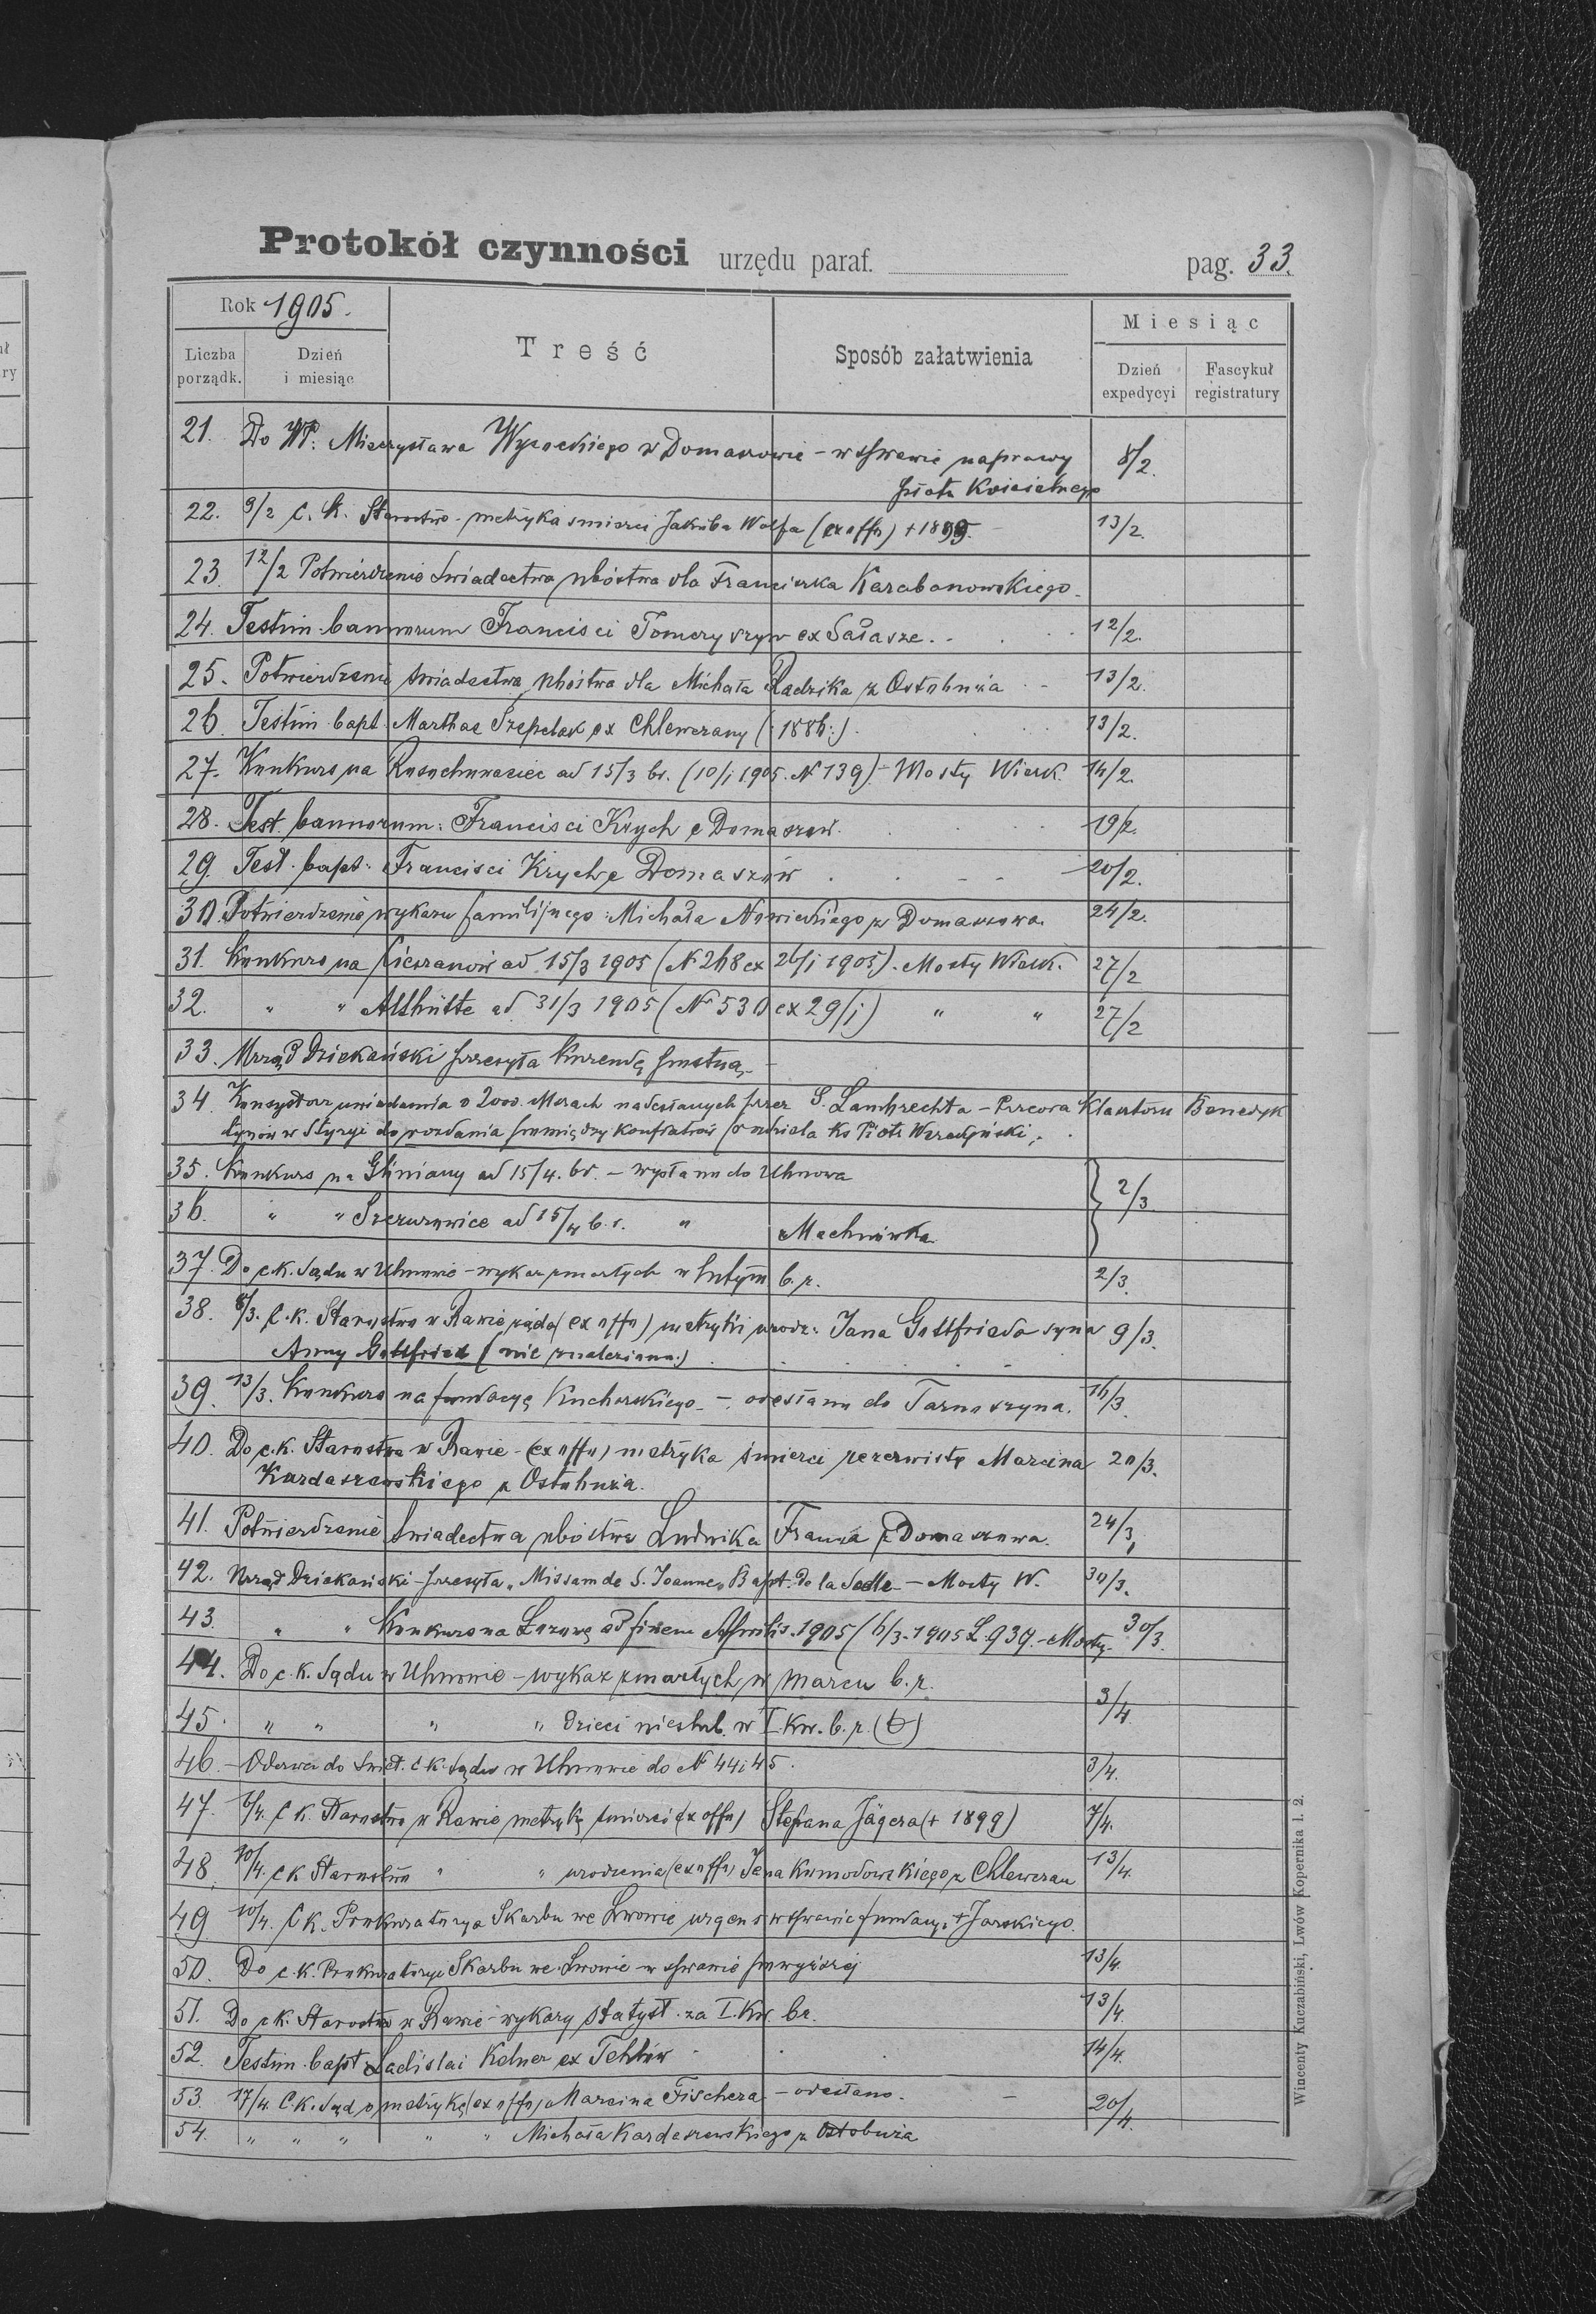 Protokół czynności urzędu paraf. pag. 33.
Rok 1905.
Liczba porządk.
Dzień i miesiąc
Treść
Sposób załatwienia
Miesiąc
Dzień expedycyi
Fascykuł registratury
21. Do WP. Mieczysława Wysockiego w Domaszowie – w sprawie naprawy 8/2.
płotu Kościelnego
22. 9/2 C. K. Starostwo - metryka śmierci Jakóba Wolfa (ex offo) +1899. 13/2.
23. 12/2 Potwierdzenie świadectwa ubóstwa dla Franciszka Karabanowskiego.
24. Testim. bannorum Francisci Tomczyszyn ex Sałasze. 12/2.
25. Potwierdzenie świadectwa ubóstwa dla Michała Radzika z Ostobuża 13/2.
26. Testim. bapt. Marthae Szepelak ex Chlewczany (:1886:). 13/2.
27. Konkurs na ad 15/3 br. (10/1 1905. N 139) – Mosty Wielk. 14/2.
28. Test. bannorum: Francisci Krych e Domaszow. 19/2.
29. Test. bapt. Francisci Krych e Domaszów 20/2.
30. Potwierdzenie wykazu familijnego: Michała Nowickiego z Domaszowa. 24/2.
31. Konkurs na Cieszanów ad 15/3 1905 (N 268 ex 26/1 1905). Mosty Wielk. 27/2
32. " " Althütte ad 31/3 1905 (N 530 ex 29/1) " " 27/2
33. Urząd Dziekański przesyła Kurendę postną.
34. Konsystorz uwiadamia o 2000 Mszach nadesłanych przez S. Lambrechta – Przeora Klasztoru Benedyk
tynów w Styryi do rozdania pomiędzy konfratrów (rozdziela Ks Piotr
35. Konkurs na Gliniany ad 15/4. br. – wysłano do Uhnowa 2/3.
36. " " Szczurowice ad 15/4 b.r. " Machnówka
37. Do c.k. Sądu w Uhnowie – wykaz zmarłych w lutym b.r. 2/3.
38. 8/3. C.K. Starostwo w Rawie żąda (ex offo) metryki urodz. Jana Gottfrieda syna 9/3.
Anny Gottfried (nie znaleziono.)
39. 13/3. Konkurs na fundacyę Kucharskiego – odesłano do Tarnoszyna. 16/3.
40. Do c.k. Starostwa w Rawie – (ex offo) metryka śmierci rezerwisty Marcina 20/3.
Kardaszewskiego z Ostobuża.
41. Potwierdzenie świadectwa ubóstwa Ludwika Franza z Domaszowa. 24/3.
42. Urząd Dziekański – przesyła „Missam de S. Joanne" Bapt. de la Salle – Mosty W. 30/3.
43. " " Konkurs na Łazową ad finem Aprilis. 1905 (6/3. 1905 L. 939. – Mosty. 30/3.
44. Do c.k. Sądu w Uhnowie – wykaz zmarłych w marcu b.r.
45. " " " " dzieci nieślub. w I. kw. b.r. (6) 3/4.
46. – Odezwa do Świet. c k. Sądu w Uhnowie do N 44 i 45. 3/4.
47. 6/4. C K. Starostwo w Rawie metrykę śmierci (ex offo) Stefana Jägera (+ 1899) 7/4.
48. 10/4. C K Starostwo " " urodzenia (ex offo) Jana Komodowskiego z Chlewczan 13/4.
49 10/4. C K. Prokuratorya Skarbu we Lwowie urgens w sprawie fundacyi + Jarskiego.
50. Do c.k. Prokuratoryi Skarbu we Lwowie – w sprawie powyższej 13/4.
51. Do c k. Starostwa w Rawie – wykazy statyst. za I. Kw. br. 13/4.
52. Testim. bapt. Ladislai Kelner ex Tehlów 14/4.
53. 17/4. C.k. Sąd o metrykę (ex offo) Marcina Fischera – odesłano.
54. " " " " " Michała Kardaszewskiego z Ostobuża 20/4.
Wincenty Kuczabiński, Lwów Kopernika l. 2.